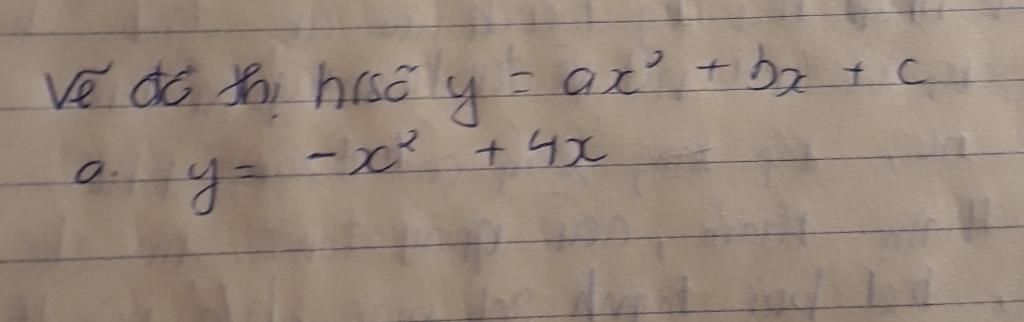 Vẽ đồ thị h/số y = ax² + bx + c
a. y = -x² + 4x